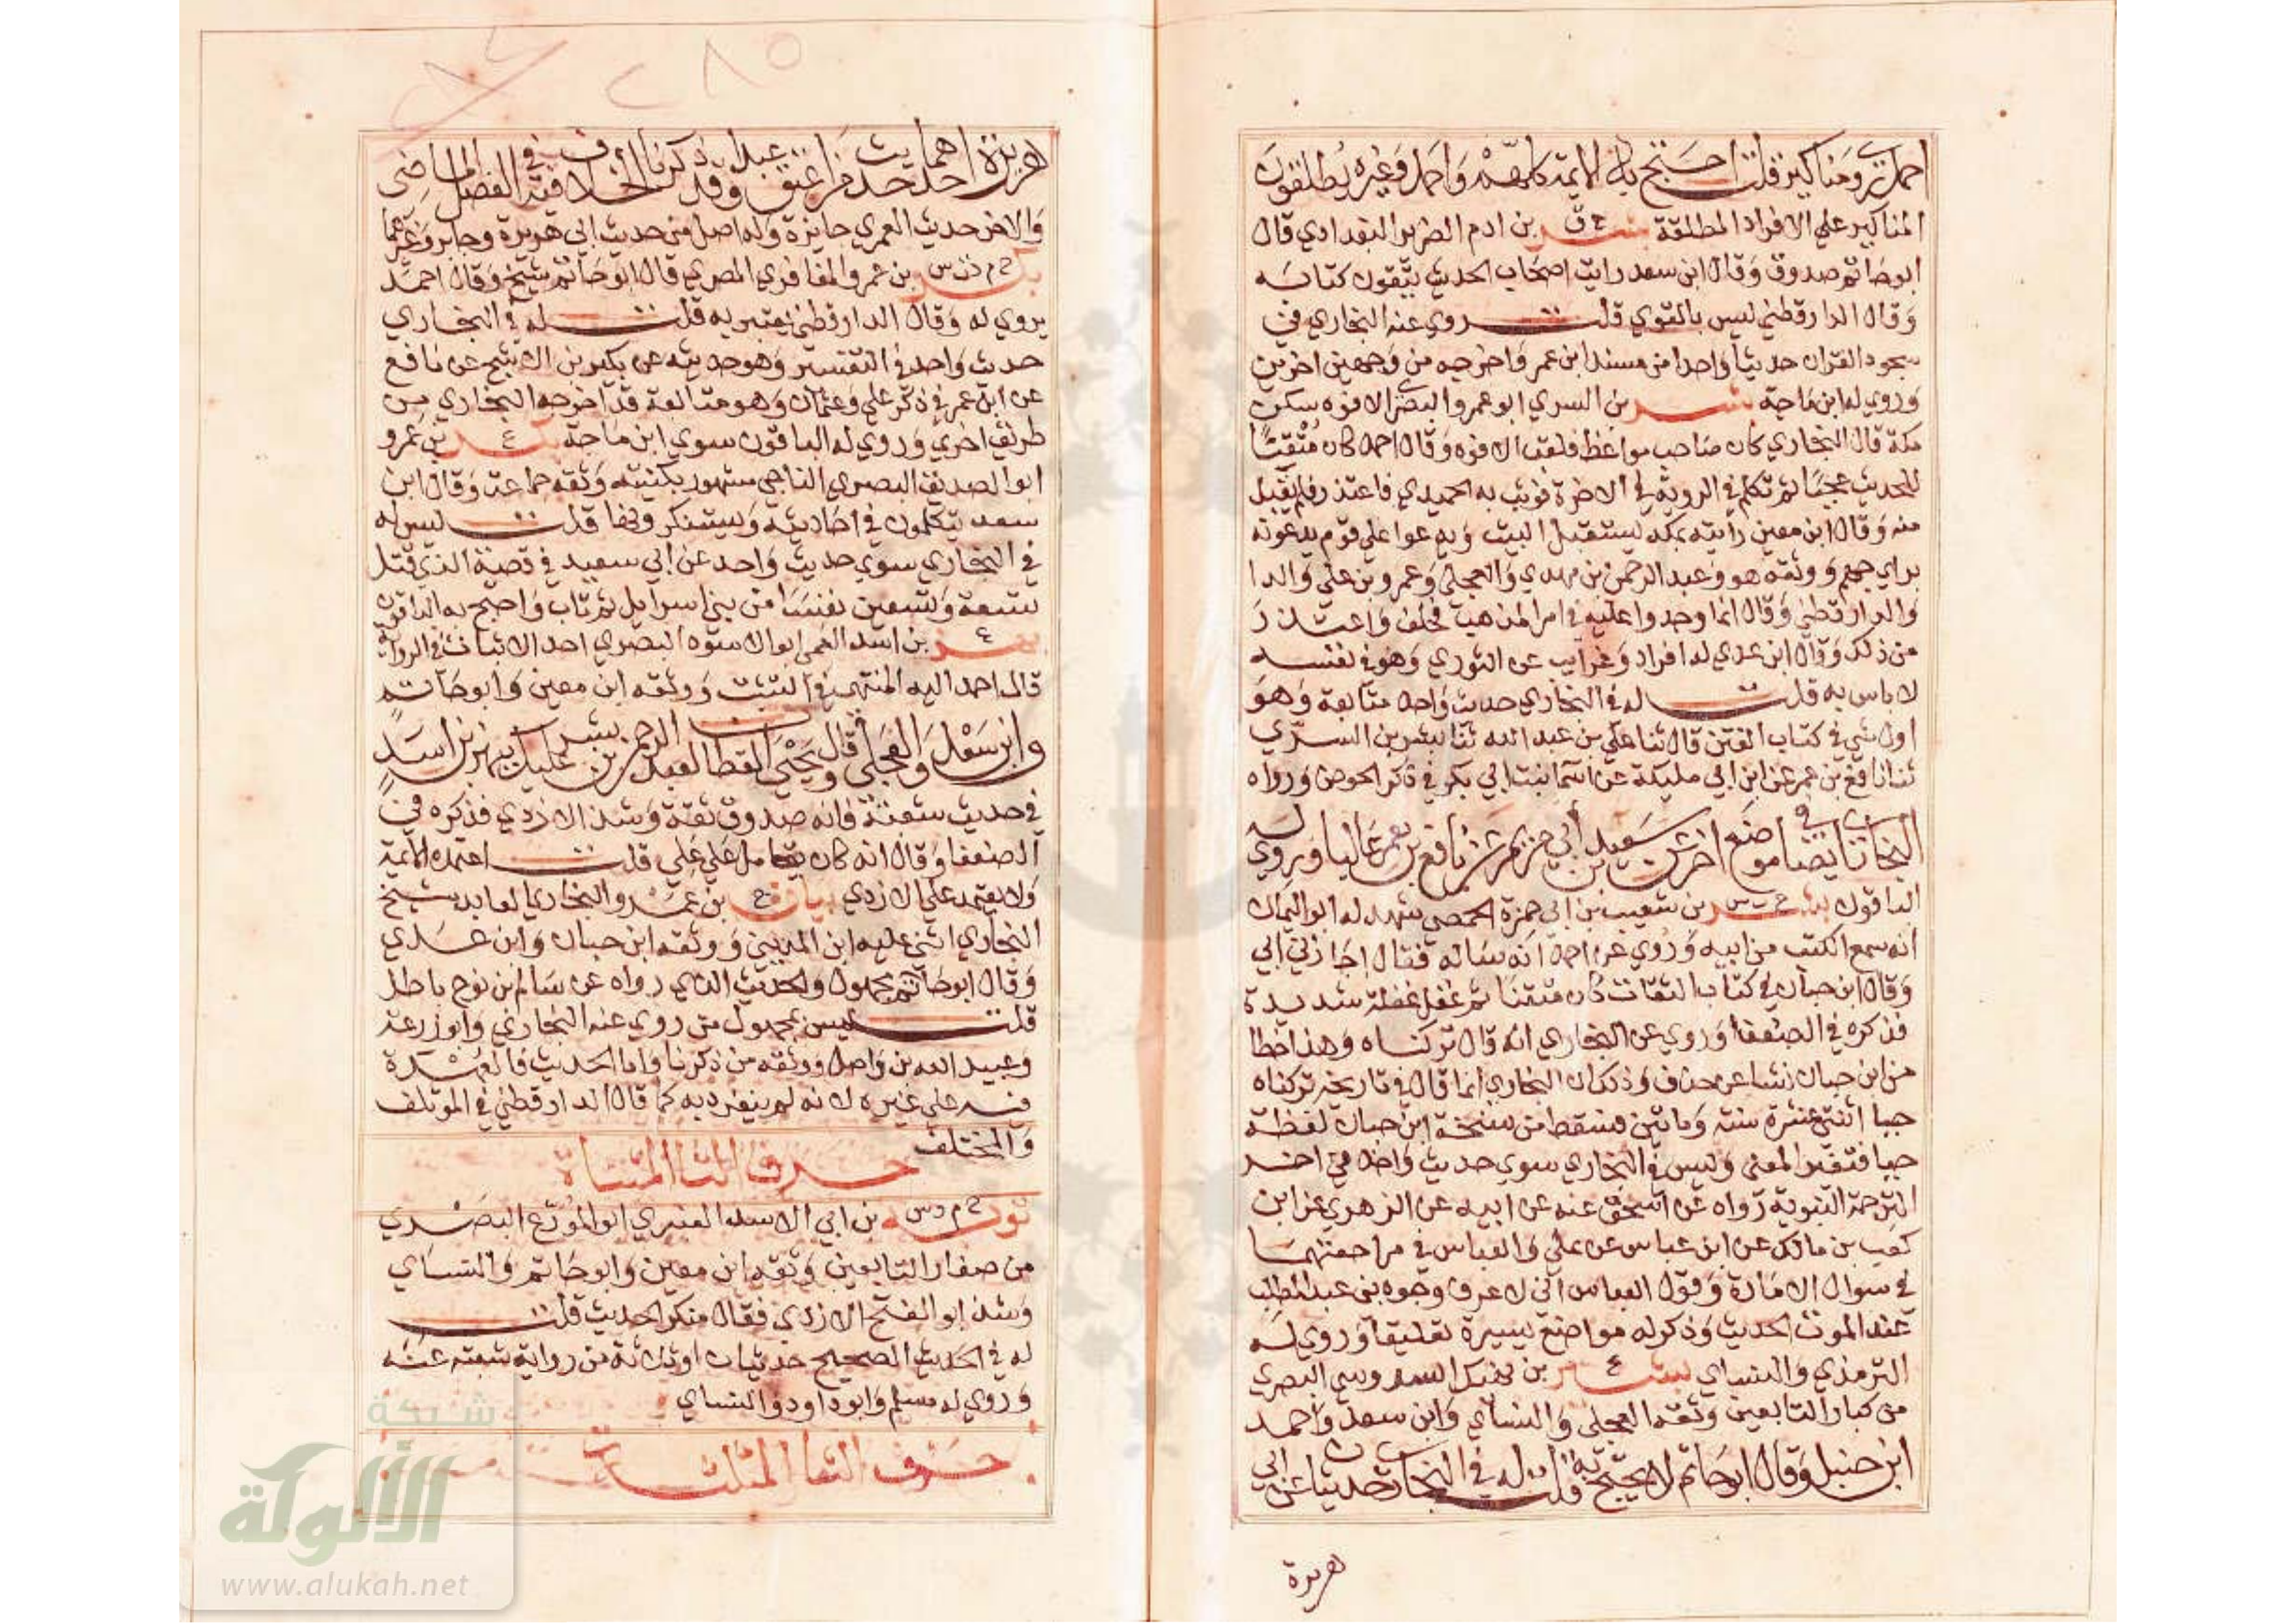 احمد يروي مناكير قلت احتج به الايمة كلهم واحمد وغيره يطلقون
المناكير علي الافراد المطلقة بشر خ ق بن ادم الضرير البغدادي قال
ابو حاتم صدوق وقال ابن سعد رايت اصحاب الحديث يتقون كتابه
وقال الدارقطني ليس بالقوي قلت روي عنه البخاري في
سجود القران حديثا واحدا من مسند ابن عمر واخرجه من وجهين اخرين
وروي له ابن ماجة بشر بن السري ابو عمرو البصري الافوه سكن
مكة قال البخاري كان صاحب مواعظ فلقب الافوه وقال احمد كان متقنا
للحديث عجبا ثم تكلم في الروية في الاخرة فوثب به الحميدي فاعتذر فلم يقبل
منه وقال ابن معين رايته بمكه يستقبل البيت ويدعوا علي قوم يدعونه
براي جهم ووثقه هو وعبد الرحمن بن مهدي والعجلي وعمرو بن علي والدا
والدارقطني وقال انما وجدوا عليه في امر المذهب فحلف واعتذر
من ذلك وقال ابن عدي له افراد وغرايب عن الثوري وهو في نفسه
لا باس به قلت له في البخاري حديث واحد متابعة وهو
اول شي في كتاب الفتن قال ثنا علي بن عبد الله ثنا بشر بن السري
ثنا نافع بن عمر عن ابن ابي مليكة عن اسما بنت ابي بكر في ذكر الحوض ورواه
البخاري ايضا في موضع اخر عن سعيد بن ابي مريم عن نافع بن عمر عاليا وروي له
الباقون بشر خ ت س بن شعيب بن ابي حمزة الحمصي شهد له ابو اليمان
انه سمع الكتب من ابيه وروي عن احمد انه ساله فقال اجازني ابي
وقال ابن حبان في كتاب الثقات كان متقنا ثم غفل غفلة شديدة
فذكره في الضعفا وروي عن البخاري انه قال تركناه وهذا خطا
من ابن حبان نشا عن حذف وذلك ان البخاري انما قال في تاريخه تركناه
حيا اثنتي عشرة سنة وماتين فسقط من نسخة ابن حبان لفظة
حيا فتغير المعنى وليس في البخاري سوي حديث واحد في اخر
الترجمة النبوية رواه عن اسحق عنه عن ابيه عن الزهري عن ابن
كعب بن مالك عن ابن عباس عن علي والعباس في مراجعتهما
في سوال الامارة وقول العباس اني لاعرف وجوه بني عبد المطلب
عند الموت الحديث وذكر له مواضع يسيرة تعليقا وروي له
الترمذي والنساي بشير ع بن نهيك السدوسي البصري
من كبار التابعين وثقه العجلي والنساي وابن سعد واحمد
ابن حنبل وقال ابو حاتم لا يحتج به قلت له في البخاري حديثان عن ابي
هريرة
هريرة احدهما حديث من اعتق عبدا وقد ذكرنا الخلاف فيه في الفصل الماضي
والاخر حديث العمري جايزة وله اصل من حديث ابي هريرة وجابر وغيرهما
بكر خ م د ت س بن عمرو المغافري المصري قال ابو حاتم شيخ وقال احمد
يروي له وقال الدارقطني يعتبر به قلت له في البخاري
حديث واحد في التفسير وهو حديثه عن بكير بن الاشج عن نافع
عن ابن عمر في ذكر علي وعثمان وهو متابعة قد اخرجه البخاري من
طريق اخري وروي له الباقون سوي ابن ماجة بكر ع بن عمرو
ابو الصديق البصري الناجي مشهور بكنيته وثقه جماعة وقال ابن
سعد يتكلمون في احاديثه ويستنكرونها قلت ليس له
في البخاري سوي حديث واحد عن ابي سعيد في قصة الذي قتل
تسعة وتسعين نفسا من بني اسرايل ثم تاب واحتج به الباقون
بهز ع بن اسد العمي ابو الاسود البصري احد الاثبات في الرواية
قال احمد اليه المنتهى في التثبت ووثقه ابن معين وابو حاتم
وابن سعد والعجلي وقال يحيى القطان لعبد الرحمن بن بشر عليك ببهز بن اسد
في حديث شعبة فانه صدوق ثقة وشذ الازدي فذكره في
الضعفا وقال انه كان يتحامل علي علي قلت اعتمده الايمة
ولا يعتمد علي الازدي بيان خ بن عمرو البخاري العابد شيخ
البخاري اثني عليه ابن المديني ووثقه ابن حبان وابن عدي
وقال ابو حاتم مجهول والحديث الذي رواه عن سالم بن نوح باطل
قلت ليس بمجهول من روي عنه البخاري وابو زرعة
وعبيد الله بن واصل ووثقه من ذكرنا واما الحديث فالعهدة
فيه علي غيره لانه لم ينفرد به كما قال الدارقطني في الموتلف
والمختلف
حرف التا المثناة
توبة خ م د س بن ابي الاسد العنبري ابو المورع البصري
من صغار التابعين وثقه ابن معين وابو حاتم والنساي
وشذ ابو الفتح الازدي فقال منكر الحديث قلت
له في الحديث الصحيح حديثان او ثلاثة من رواية شعبة عنه
وروي له مسلم وابو داود والنساي
حرف الثا المثلثة
شبكة
الألوكة
www.alukah.net